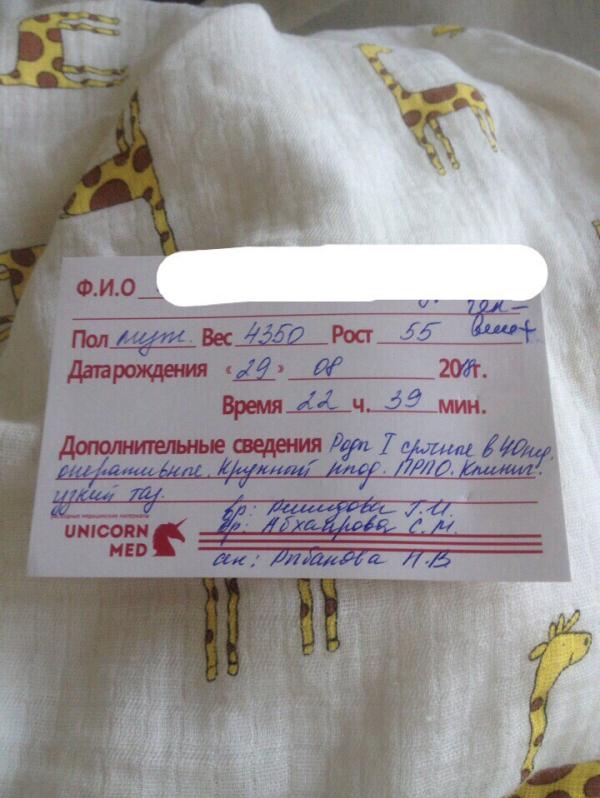 Ф.И.О
Пол муж. Вес 4350 Рост 55
Дата рождения «29» 08 2018г.
Время 22 ч. 39 мин.
Дополнительные сведения Роды I срочные в 40нед.
оперативные. Крупный плод. ПРПО. Клинич.
узкий таз.
UNICORN
MED
вр: Г.И.
вр: Абхаирова С.М.
ак: Рыбакова Н.В